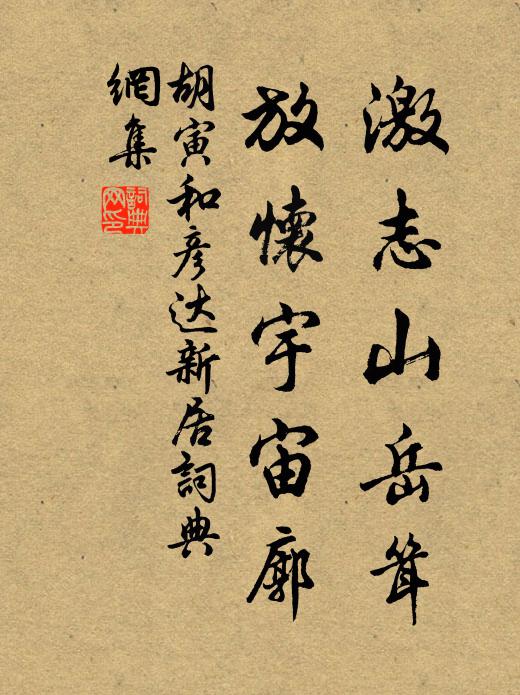 激志山岳聳
放懷宇宙廓
胡寅和彦达新居詞典
網集
詞典
网印